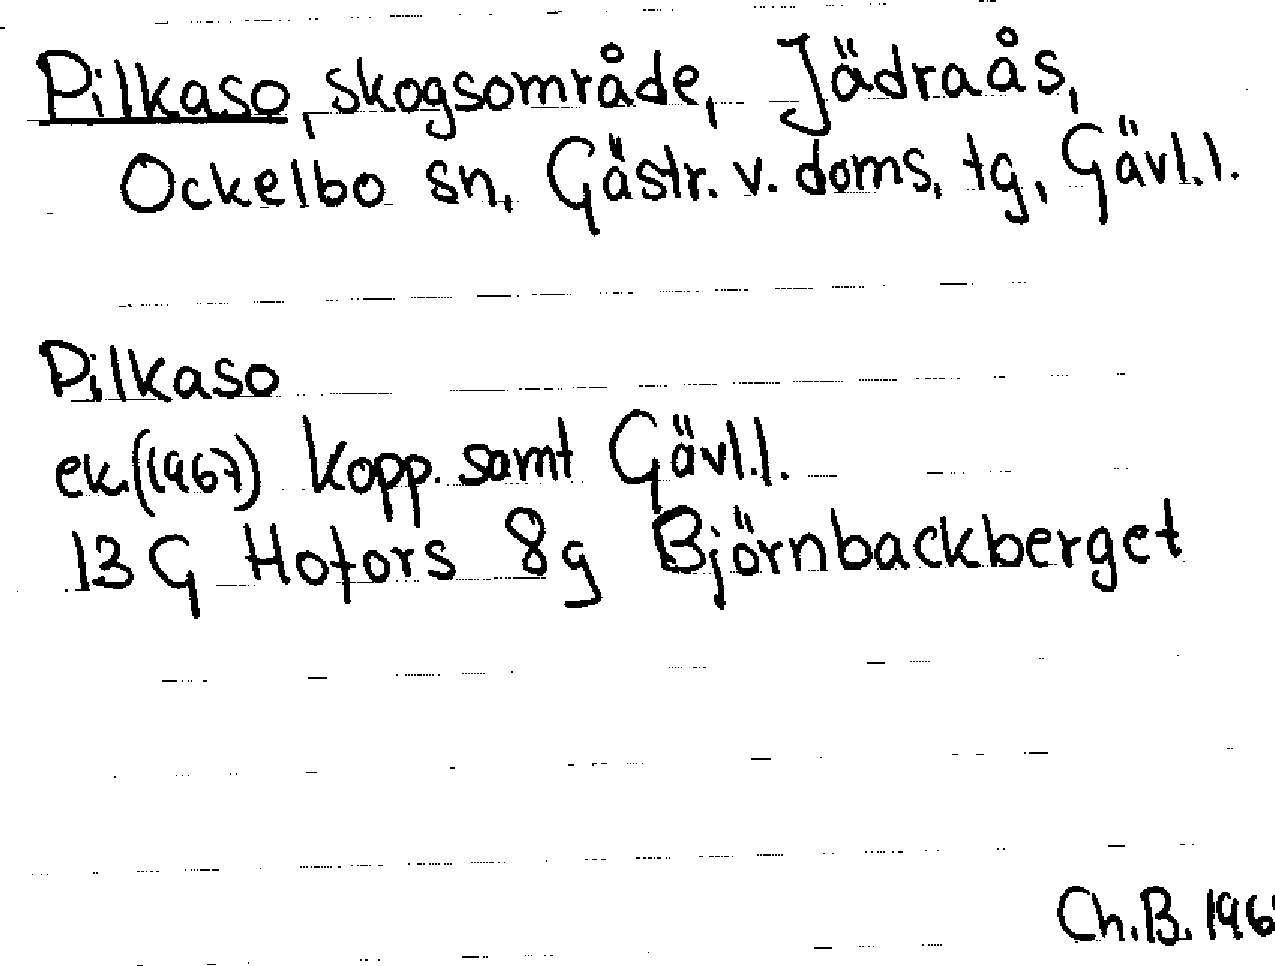 Pilkaso, skogsområde, Jädraås,
Ockelbo sn, Gästr. v. doms, tg, Gävl.l.
Pilkaso
ek.(1967) Kopp. samt Gävl.l.
13 G Hofors 8g Björnbackberget
Ch.B. 196